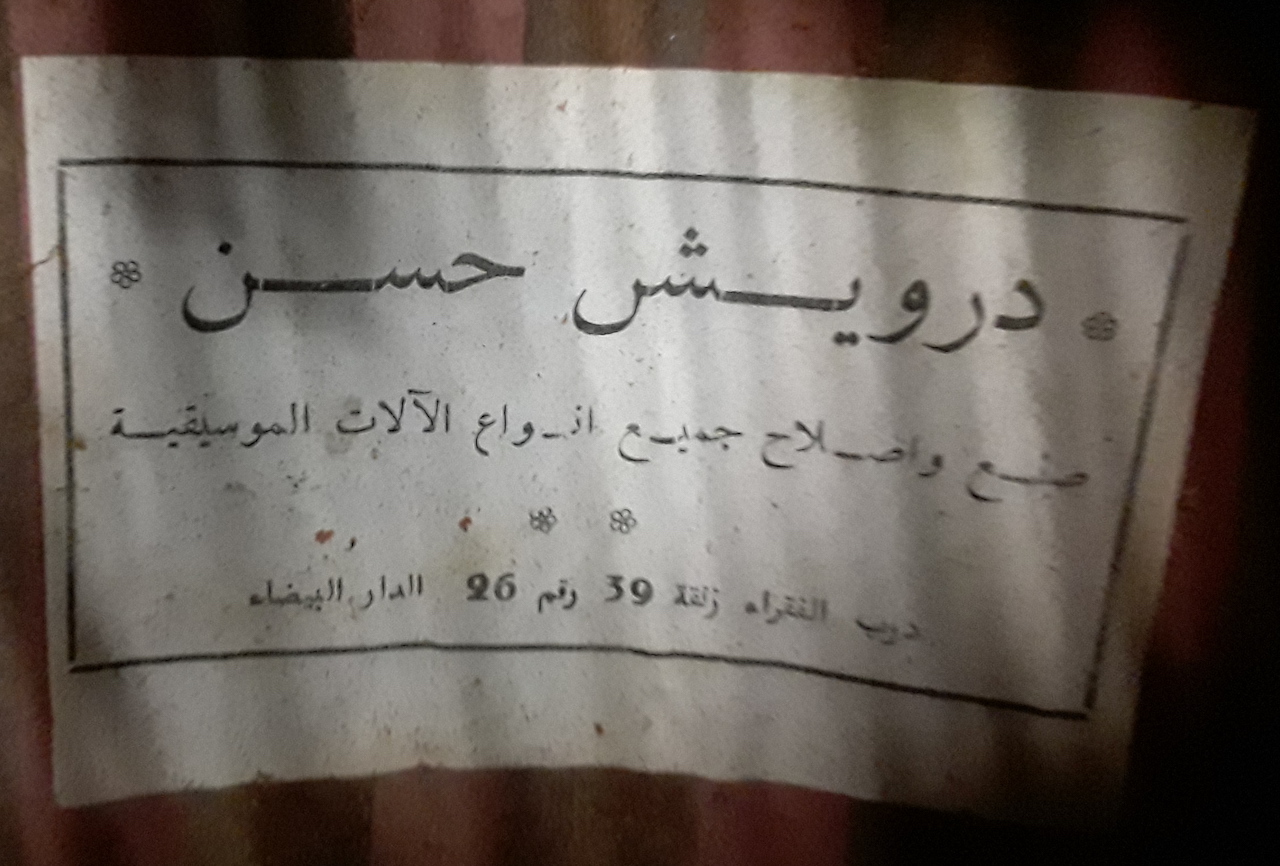 درويش حسن
صنع واصلاح جميع انواع الآلات الموسيقية
درب الفقراء زنقة 39 رقم 26 الدار البيضاء